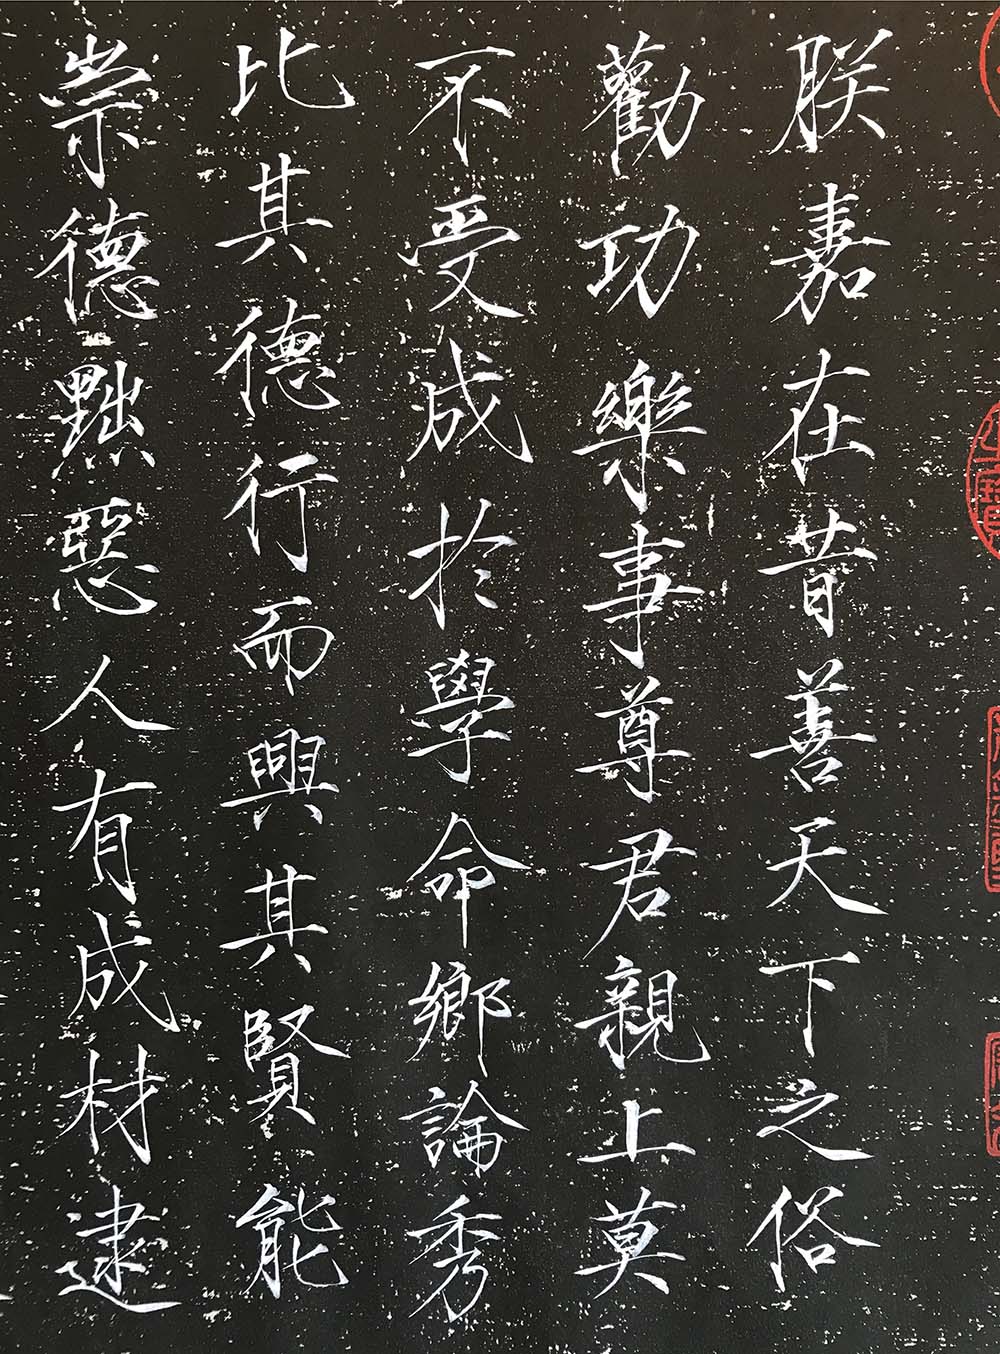 朕嘉在昔善天下之俗
勸功樂事尊君親上莫
不受成於學命鄉論秀
比其德行而興其賢能
崇德黜惡人有成材逮